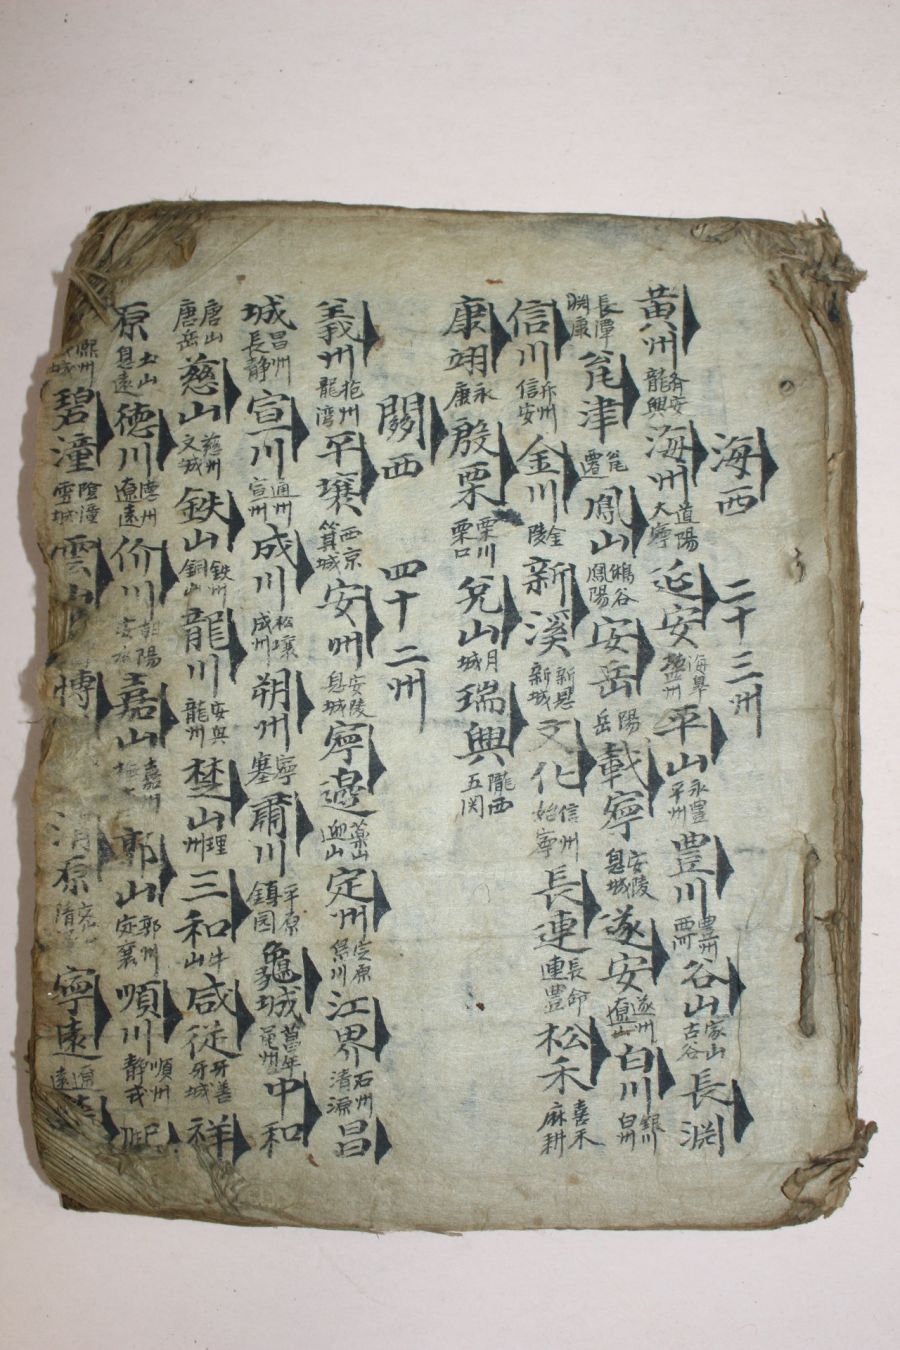 海西 二十三州
黃州 齊安 龍興 海州 道陽 大寧 延安 海皐 塩州 平山 永豊 平州 豊川 豊州 西河 谷山 家山 古谷 長淵
長潭 淵康 瓮津 瓮遷 鳳山 鵂谷 鳳陽 安岳 陽岳 載寧 安陵 息城 遂安 遂州 遼山 白川 銀川 白州
信川 升州 信安 金川 金陵 新溪 新恩 新城 文化 信州 始寧 長連 長命 連豊 松禾 嘉禾 麻耕
康翊 永康 殷栗 栗川 栗口 兔山 月城 瑞興 隴西 五関
關西 四十二州
義州 抱州 龍湾 平壤 西京 箕城 安州 安陵 息城 寧邊 藥山 迎山 定州 定原 隽川 江界 石州 清源 昌
城 昌州 長靜 宣川 通州 宣州 成川 松壤 成州 朔州 寧塞 肅川 平原 鎮国 龜城 萬年 龜州 中和
唐山 唐岳 慈山 慈州 文城 鉄山 鉄州 銅山 龍川 安興 龍州 楚山 理州 三和 牛山 咸從 牙善 牙城 祥
原 土山 息遠 德川 德州 遼遠 价川 朝陽 安 嘉山 嘉州 郭山 郭州 定襄 順川 順州 靜戎
碧潼 陰潼 雪城 雲山 博 清原 寧遠